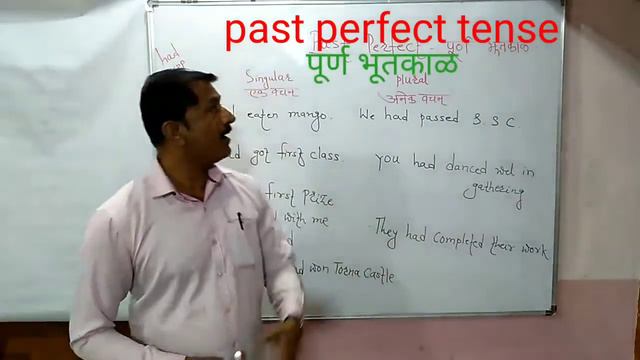 past perfect tense
पूर्ण भूतकाळ
Past Perfect - पूर्ण भूतकाळ
had
Singular
एक वचन
plural
अनेक वचन
eaten mango.
We had passed S.S.C.
got first class
you had danced well in
gathering
first Prize
with me
They had completed their work
won Torna Castle